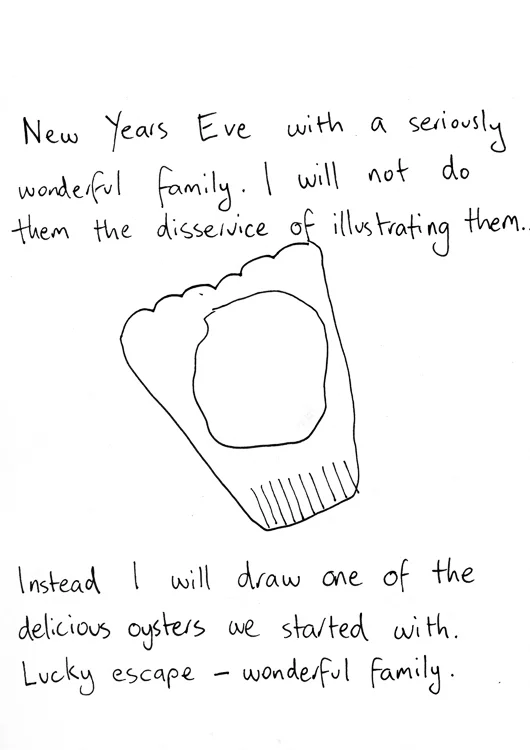 New Years Eve with a seriously
wonderful family. I will not do
them the disservice of illustrating them..
Instead I will draw one of the
delicious oysters we started with.
Lucky escape – wonderful family.